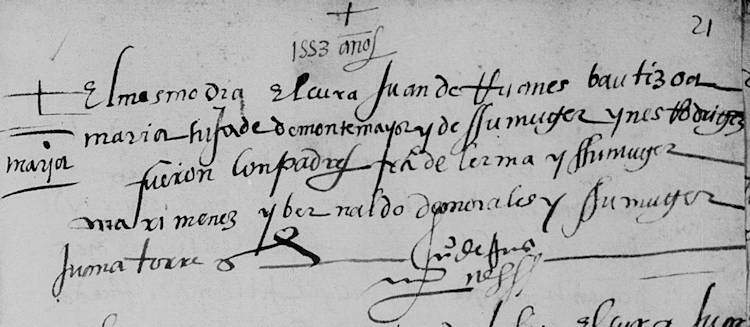 21
1553 años
El mesmo dia el cura Juan de funes bautizo a
maria hija de demontemayor y de su muger ynes Rodrigez
maria
fueron conpadres fr de lerma y su muger
mari menez y bernaldo de morales y su muger
Juana torre
Ju de fu
nes